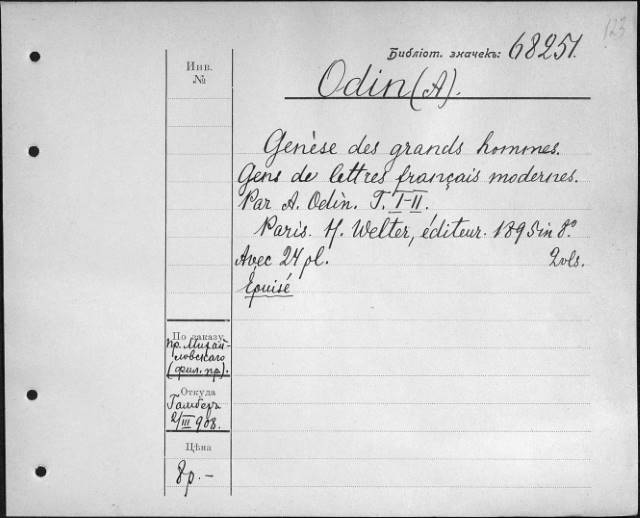 123
Библіот. значекъ: 68251.
Инв.
№
Odin (A).
Genèse des grands hommes.
Gens de lettres français modernes.
Par A. Odin. T. I-II.
Paris. H. Welter, éditeur. 1895 in 8°
Avec 24 pl. 2 vls.
Épuisé
По заказу
пр. Михай-
ловскаго
(фил. пр).
Откуда
Гамберъ
2/III 908.
Цѣна
8 р. -